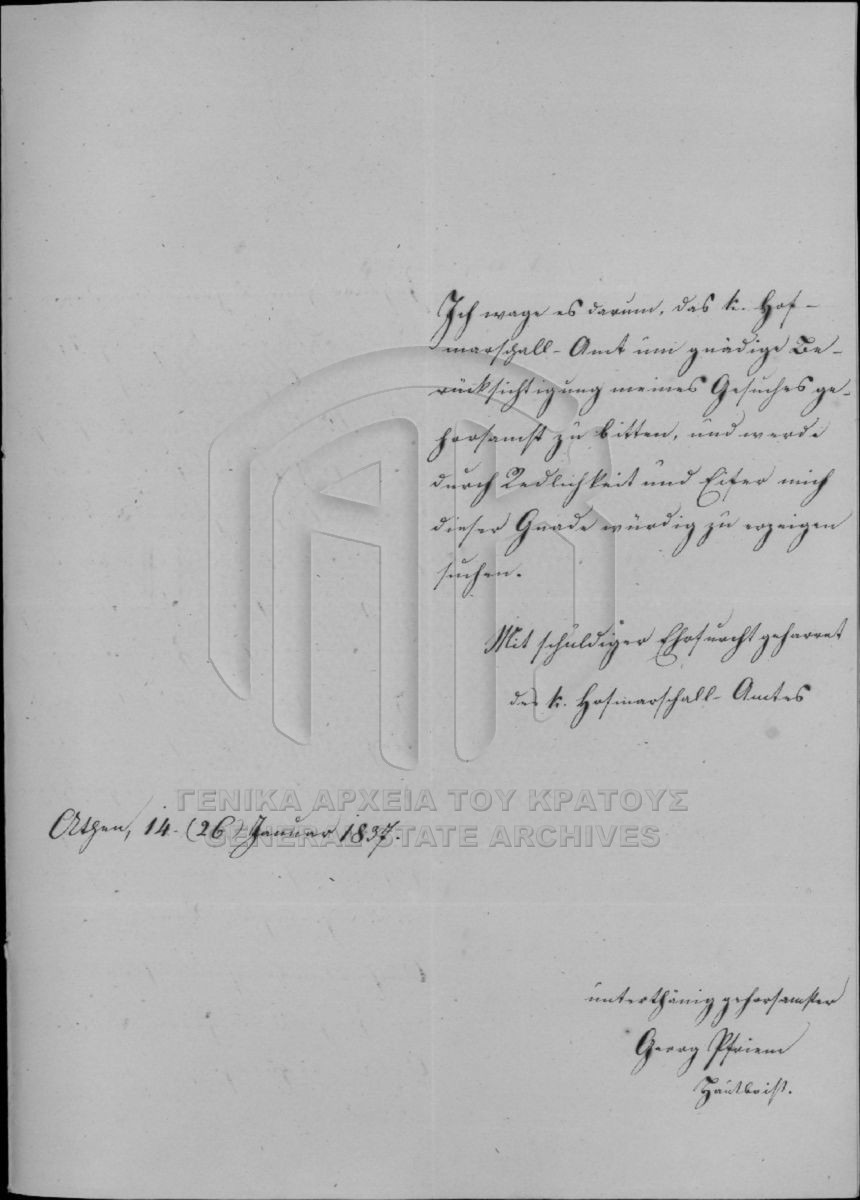 Ich wage es darum, das k. Hof-
marschall-Amt um gnädige Be-
rücksichtigung meines Gesuches ge-
horsamst zu bitten, und werde
durch Redlichkeit und Eifer mich
dieser Gnade würdig zu erzeigen
suchen.
Mit schuldiger Ehrfurcht geharret
des k. Hofmarschall-Amtes
ΓΕΝΙΚΑ ΑΡΧΕΙΑ ΤΟΥ ΚΡΑΤΟΥΣ
GENERAL STATE ARCHIVES
Athen, 14. (26) Januar 1837.
unterthänig gehorsamster
Georg Pfriem
Hautboist.